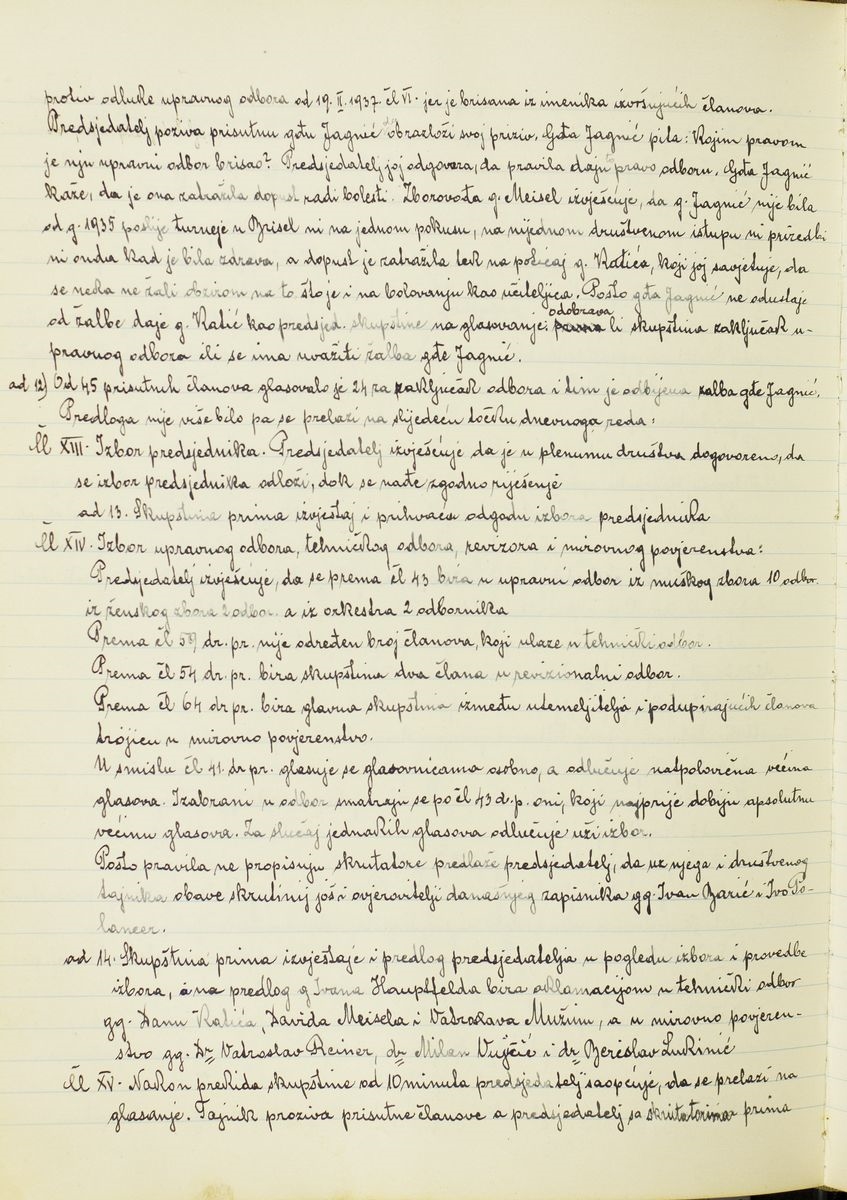 protiv odluke upravnog odbora od 19. II. 1937. čl VI. jer je brisana iz imenika izvršujućih članova.
Predsjedatelj poziva prisutnu gđu Jagnić da obrazloži svoj priziv. Gđa Jagnić pita: Kojim pravom
je nju upravni odbor brisao? Predsjedatelj joj odgovara, da pravila daju pravo odboru. Gđa Jagnić
kaže, da je ona zatražila dopust radi bolesti. Zborovođa g. Meisel izvješćuje, da g. Jagnić nije bila
od g. 1935 poslije turneje u Brisel ni na jednom pokusu, na nijednom društvenom istupu ni priredbi
ni onda kad je bila zdrava, a dopust je zatražila tek na poticaj g. Katića, koji joj savjetuje, da
se neka ne žali obzirom na to što je i na bolovanju kao učiteljica. Pošto gđa Jagnić ne odustaje
od žalbe daje g. Katić kao predsjed. skupštine na glasovanje: odobrava li skupština zaključak u-
pravnog odbora ili se ima uvažiti žalba gđe Jagnić.
ad 12) Od 45 prisutnih članova glasovalo je 24 za zaključak odbora i tim je odbijena žalba gđe Jagnić.
Predloga nije više bilo pa se prelazi na slijedeću točku dnevnoga reda:
Čl XIII. Izbor predsjednika. Predsjedatelj izvješćuje da je u plenumu društva dogovoreno, da
se izbor predsjednika odloži, dok se nađe zgodno riješenje
ad 13. Skupština prima izvještaj i prihvaća odgodu izbora predsjednika
Čl XIV. Izbor upravnog odbora, tehničkog odbora, revizora i mirovnog povjerenstva:
Predsjedatelj izvješćuje, da se prema čl 43 bira u upravni odbor iz muškog zbora 10 odbor.
iz ženskog zbora 2 odbor. a iz orkestra 2 odbornika
Prema čl 59 dr. pr. nije određen broj članova, koji ulaze u tehnički odbor.
Prema čl 54 dr. pr. bira skupština dva člana u revizionalni odbor.
Prema čl 64 dr pr. bira glavna skupština između utemeljitelja i podupirajućih članova
trojicu u mirovno povjerenstvo.
U smislu čl 41. dr pr. glasuje se glasovnicama osobno, a odlučuje natpolovična većina
glasova. Izabrani u odbor smatraju se po čl 43 d. p. oni, koji najprije dobiju apsolutnu
većinu glasova. Za slučaj jednakih glasova odlučuje uži izbor.
Pošto pravila ne propisuju skrutatore predlaže predsjedatelj, da uz njega i društvenog
tajnika obave skrutinij još i ovjerovitelji današnjeg zapisnika gg. Ivan Barić i Ivo Po-
laneer.
ad 14. Skupština prima izvještaje i predlog predsjedatelja u pogledu izbora i provedbe
izbora, a na predlog g Ivana Hauptfelda bira aklamacijom u tehnički odbor
gg. Danu Katića, Davida Meisela i Vatroslava Mužinu, a u mirovno povjeren-
stvo gg. Dr Vatroslav Reiner, dr Milan Vujčić i dr Berislav Lukinić
Čl XV. Nakon prekida skupštine od 10 minuta predsjedatelj saopćuje, da se prelazi na
glasanje. Tajnik proziva prisutne članove a predsjedatelj sa skrutatorima prima